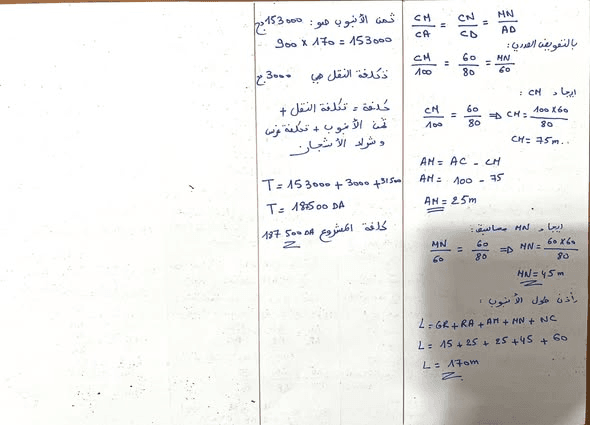 CM/CA = CN/CD = MN/AD
بالتعويض العددي:
CM/100 = 60/80 = MN/60
ايجاد CM :
CM/100 = 60/80 => CM = 100x60/80
CM = 75m..
AM = AC - CM
AM = 100 - 75
AM = 25m
ايجاد MN
MN/60 = 60/80 => MN = 60x60/80
MN = 45m
إذن طول الأنبوب :
L = GR + RA + AM + MN + NC
L = 15 + 25 + 25 + 45 + 60
L = 170m
ثمن الأنبوب هو: 153000 دج
900 x 170 = 153000
تكلفة النقل هي 3000 دج
كلفة = تكلفة النقل +
ثمن الأنبوب + تكلفة غرس
وشراء الأشجار
T = 153000 + 3000 + 31500
T = 187500 DA
كلفة المشروع 187 500 DA